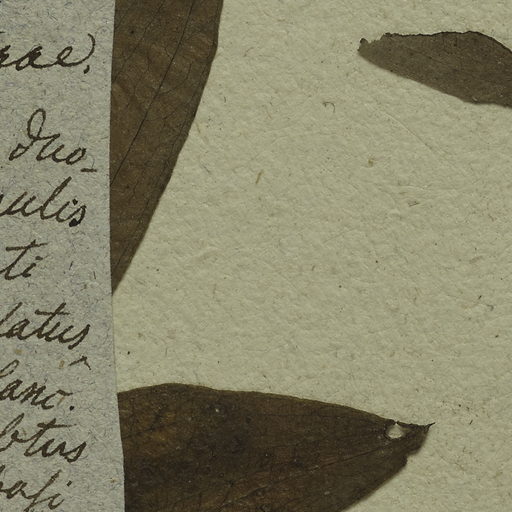 rae.
duo-
ulis
ti
latus
lanô.
btus
basi